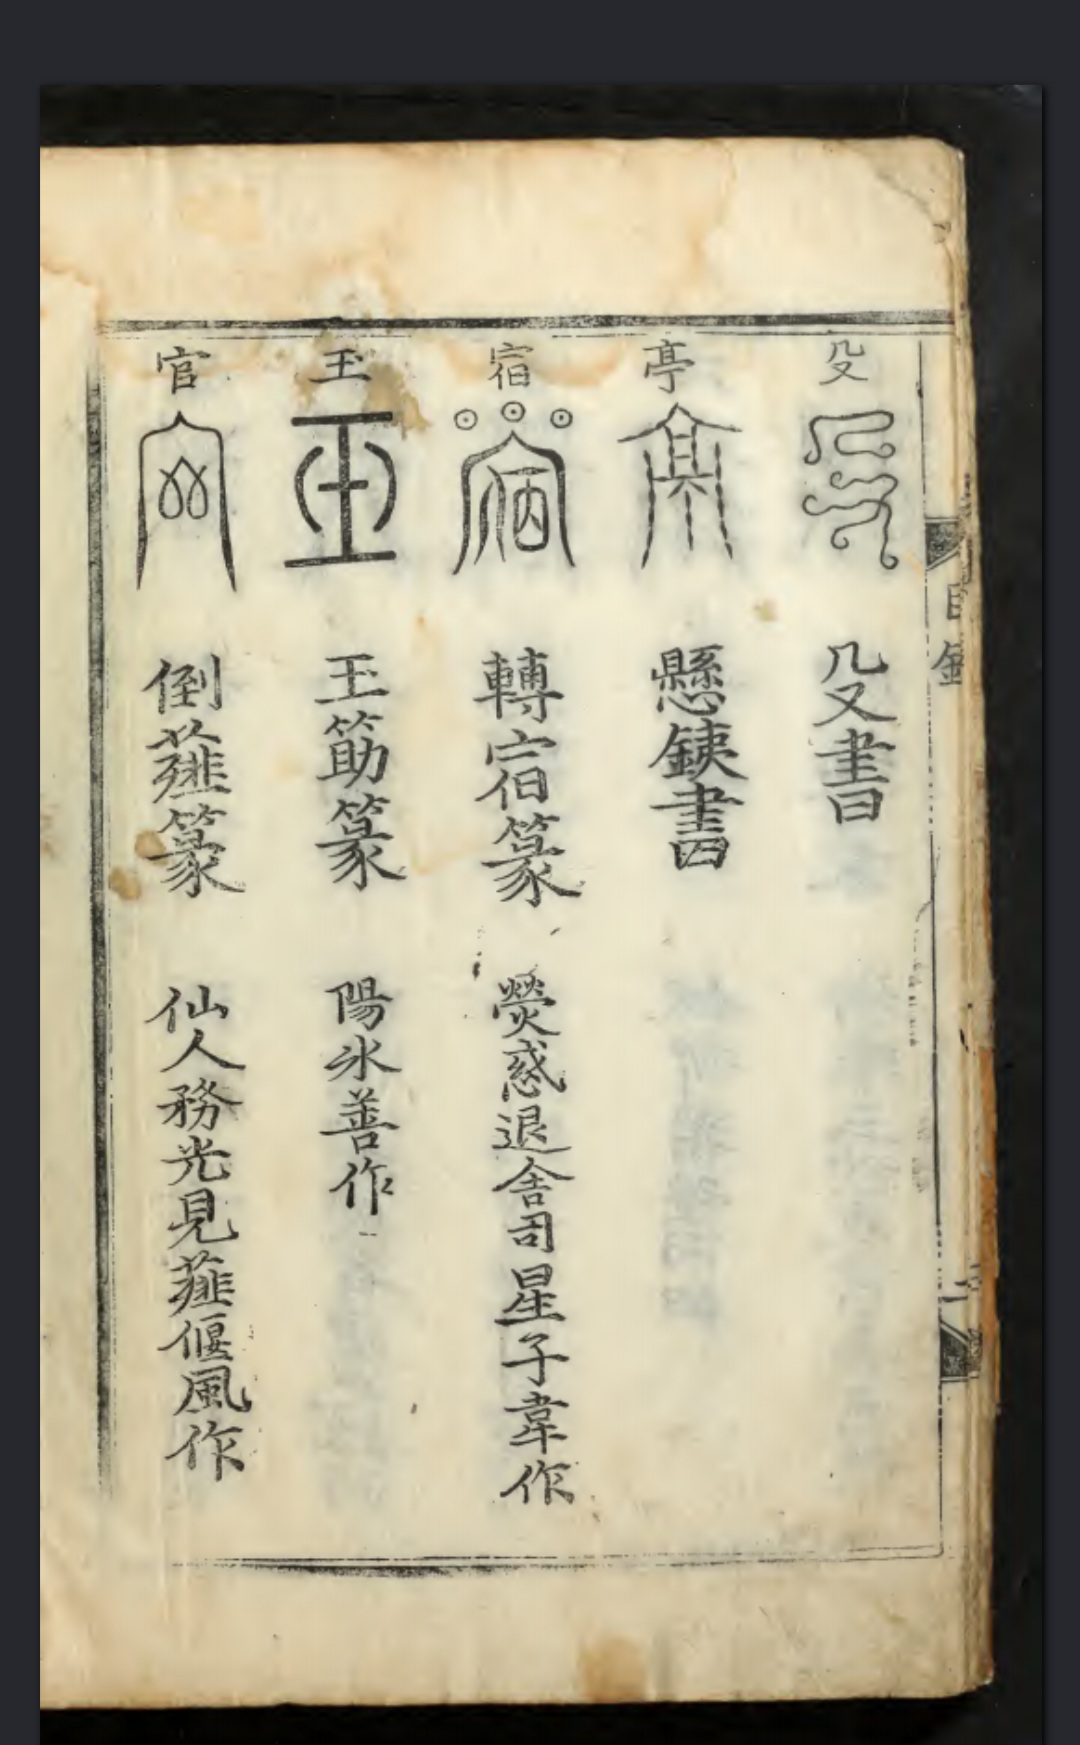 目錄
殳
殳書
亭
懸鍼書
宿
轉宿篆
熒惑退舍司星子韋作
玉
玉筯篆
陽氷善作
官
倒薤篆
仙人務光見薤偃風作